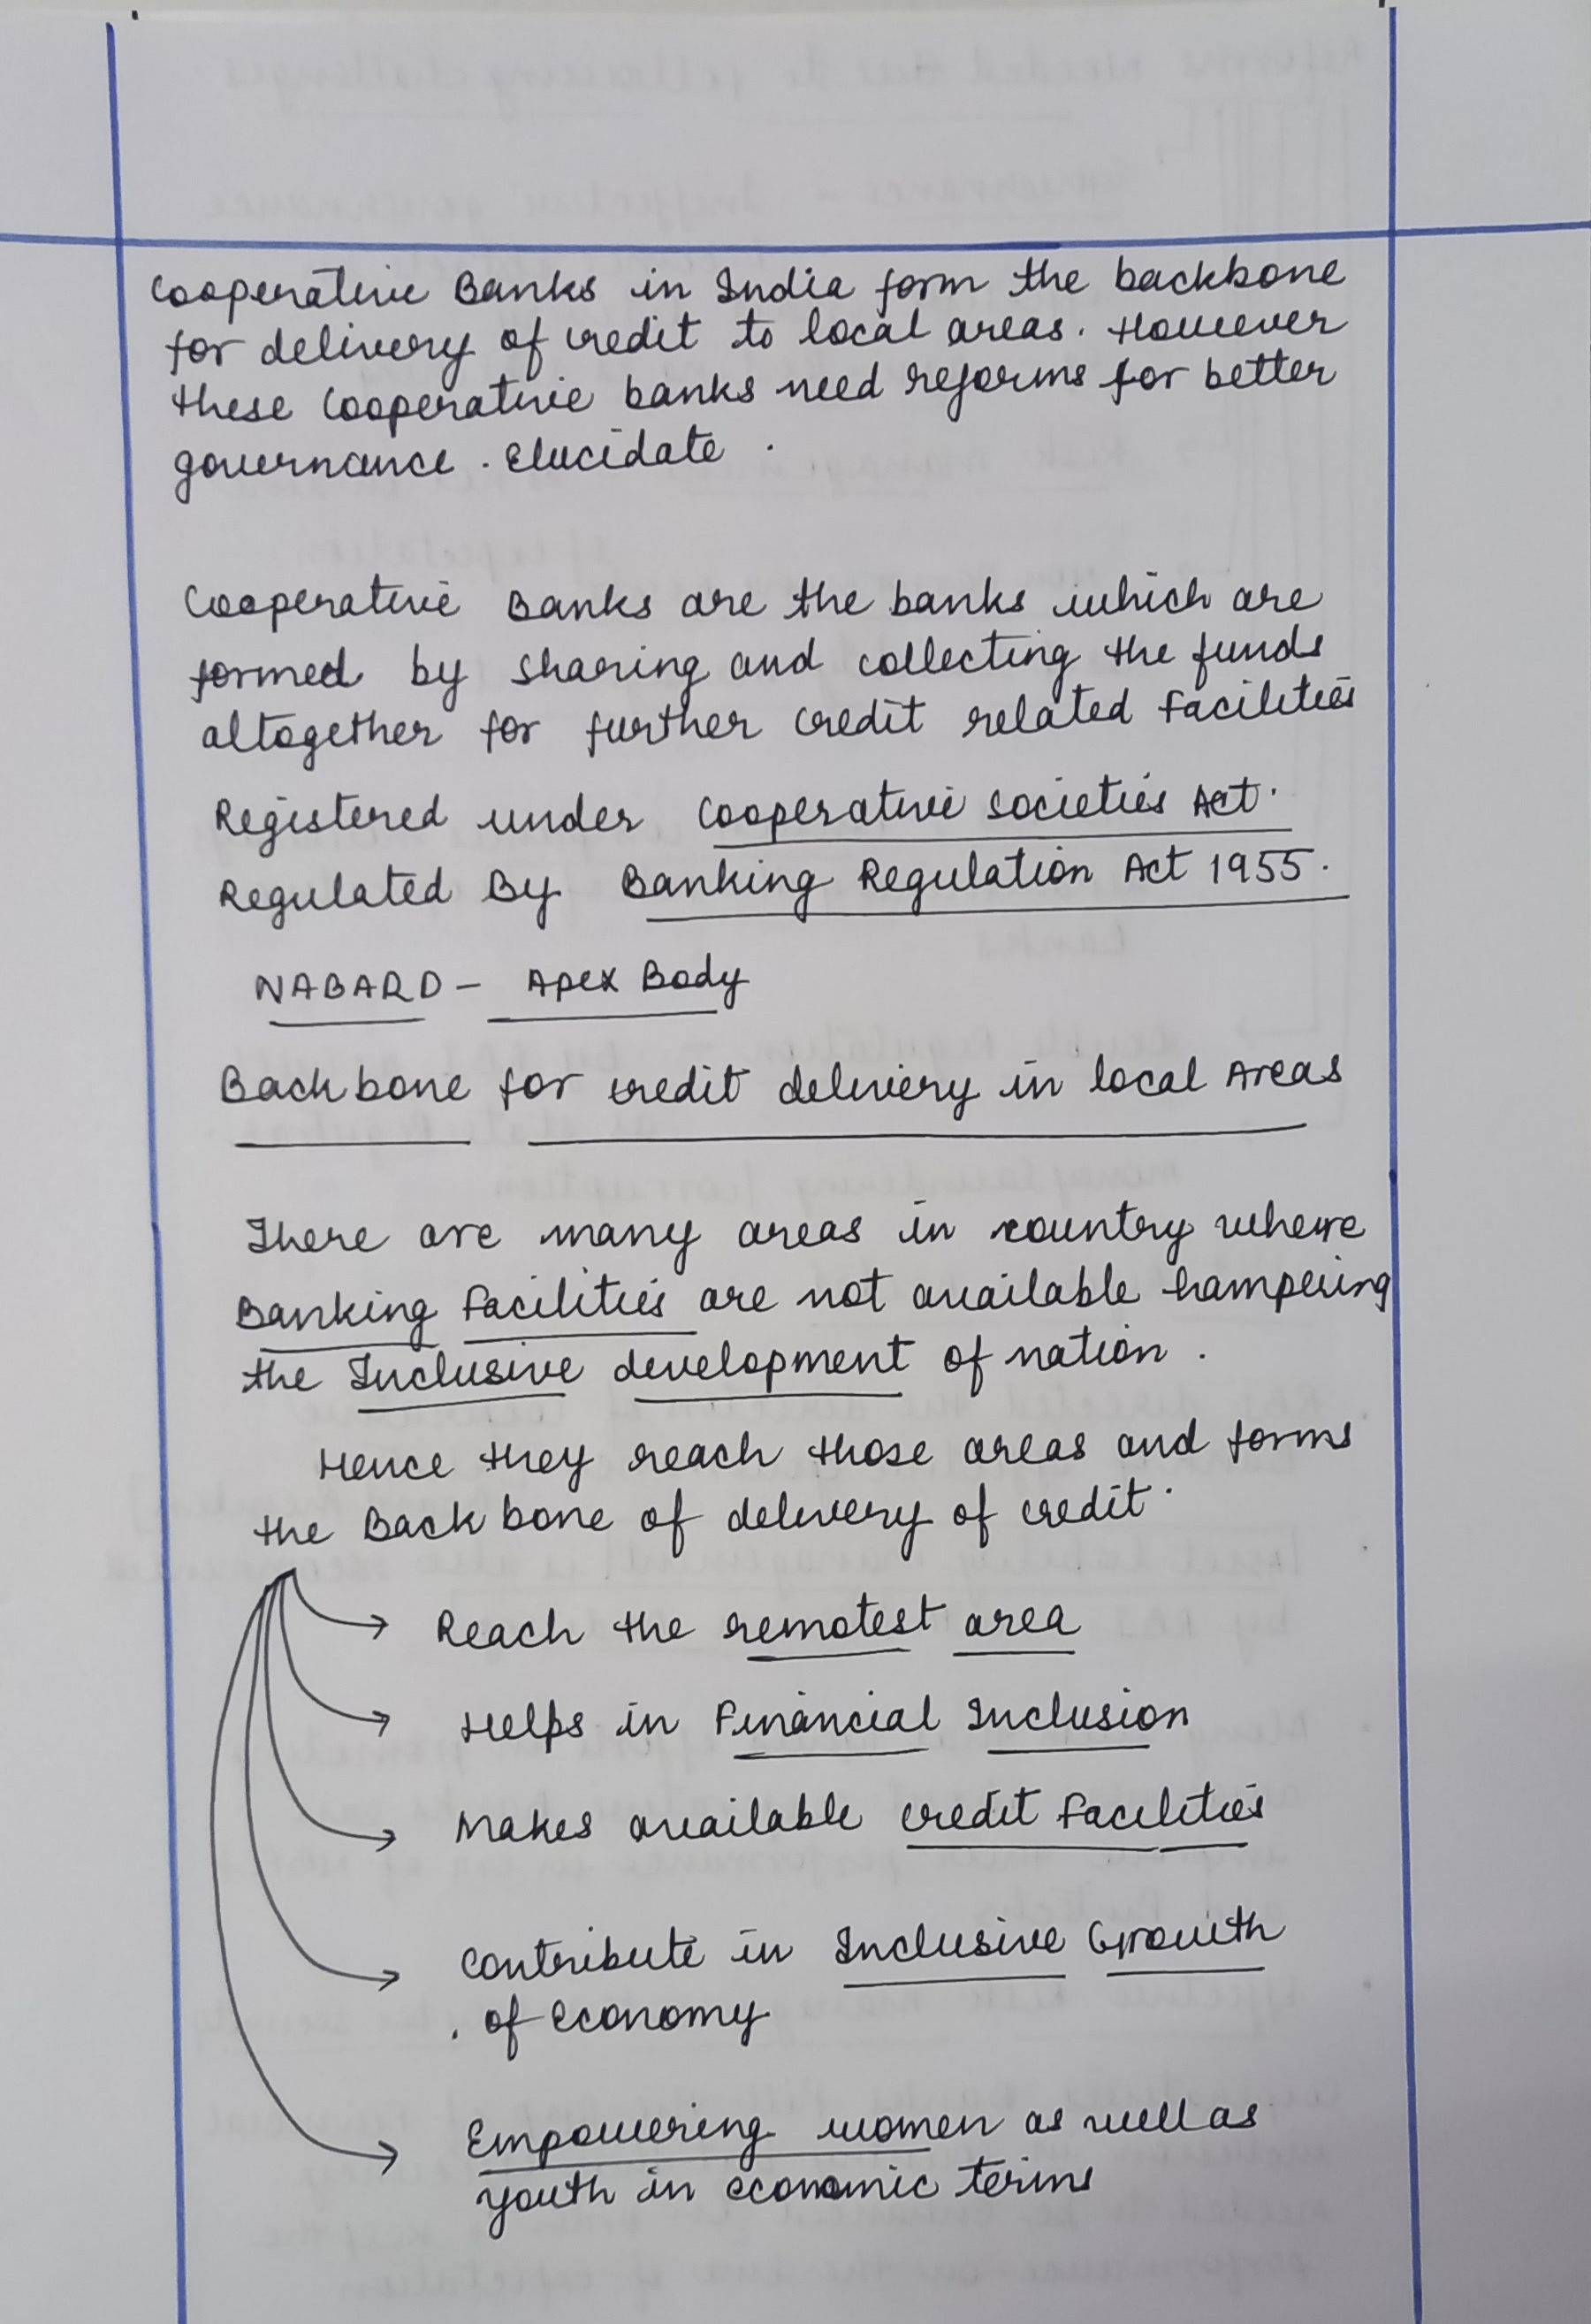 Cooperative Banks in India form the backbone
for delivery of credit to local areas. However
these Cooperative banks need reforms for better
governance. Elucidate.
Cooperative Banks are the banks which are
formed by sharing and collecting the funds
altogether for further credit related Facilities
Registered under Cooperative Societies Act.
Regulated By Banking Regulation Act 1955.
NABARD - Apex Body
Backbone for credit delivery in local Areas
There are many areas in country where
Banking Facilities are not available hampering
the Inclusive development of nation.
Hence they reach those areas and forms
the Back bone of delivery of credit.
→ Reach the remotest area
→ Helps in Financial Inclusion
→ Makes available credit Facilities
→ Contribute in Inclusive Growth
of Economy
→ Empowering women as well as
youth in economic terms